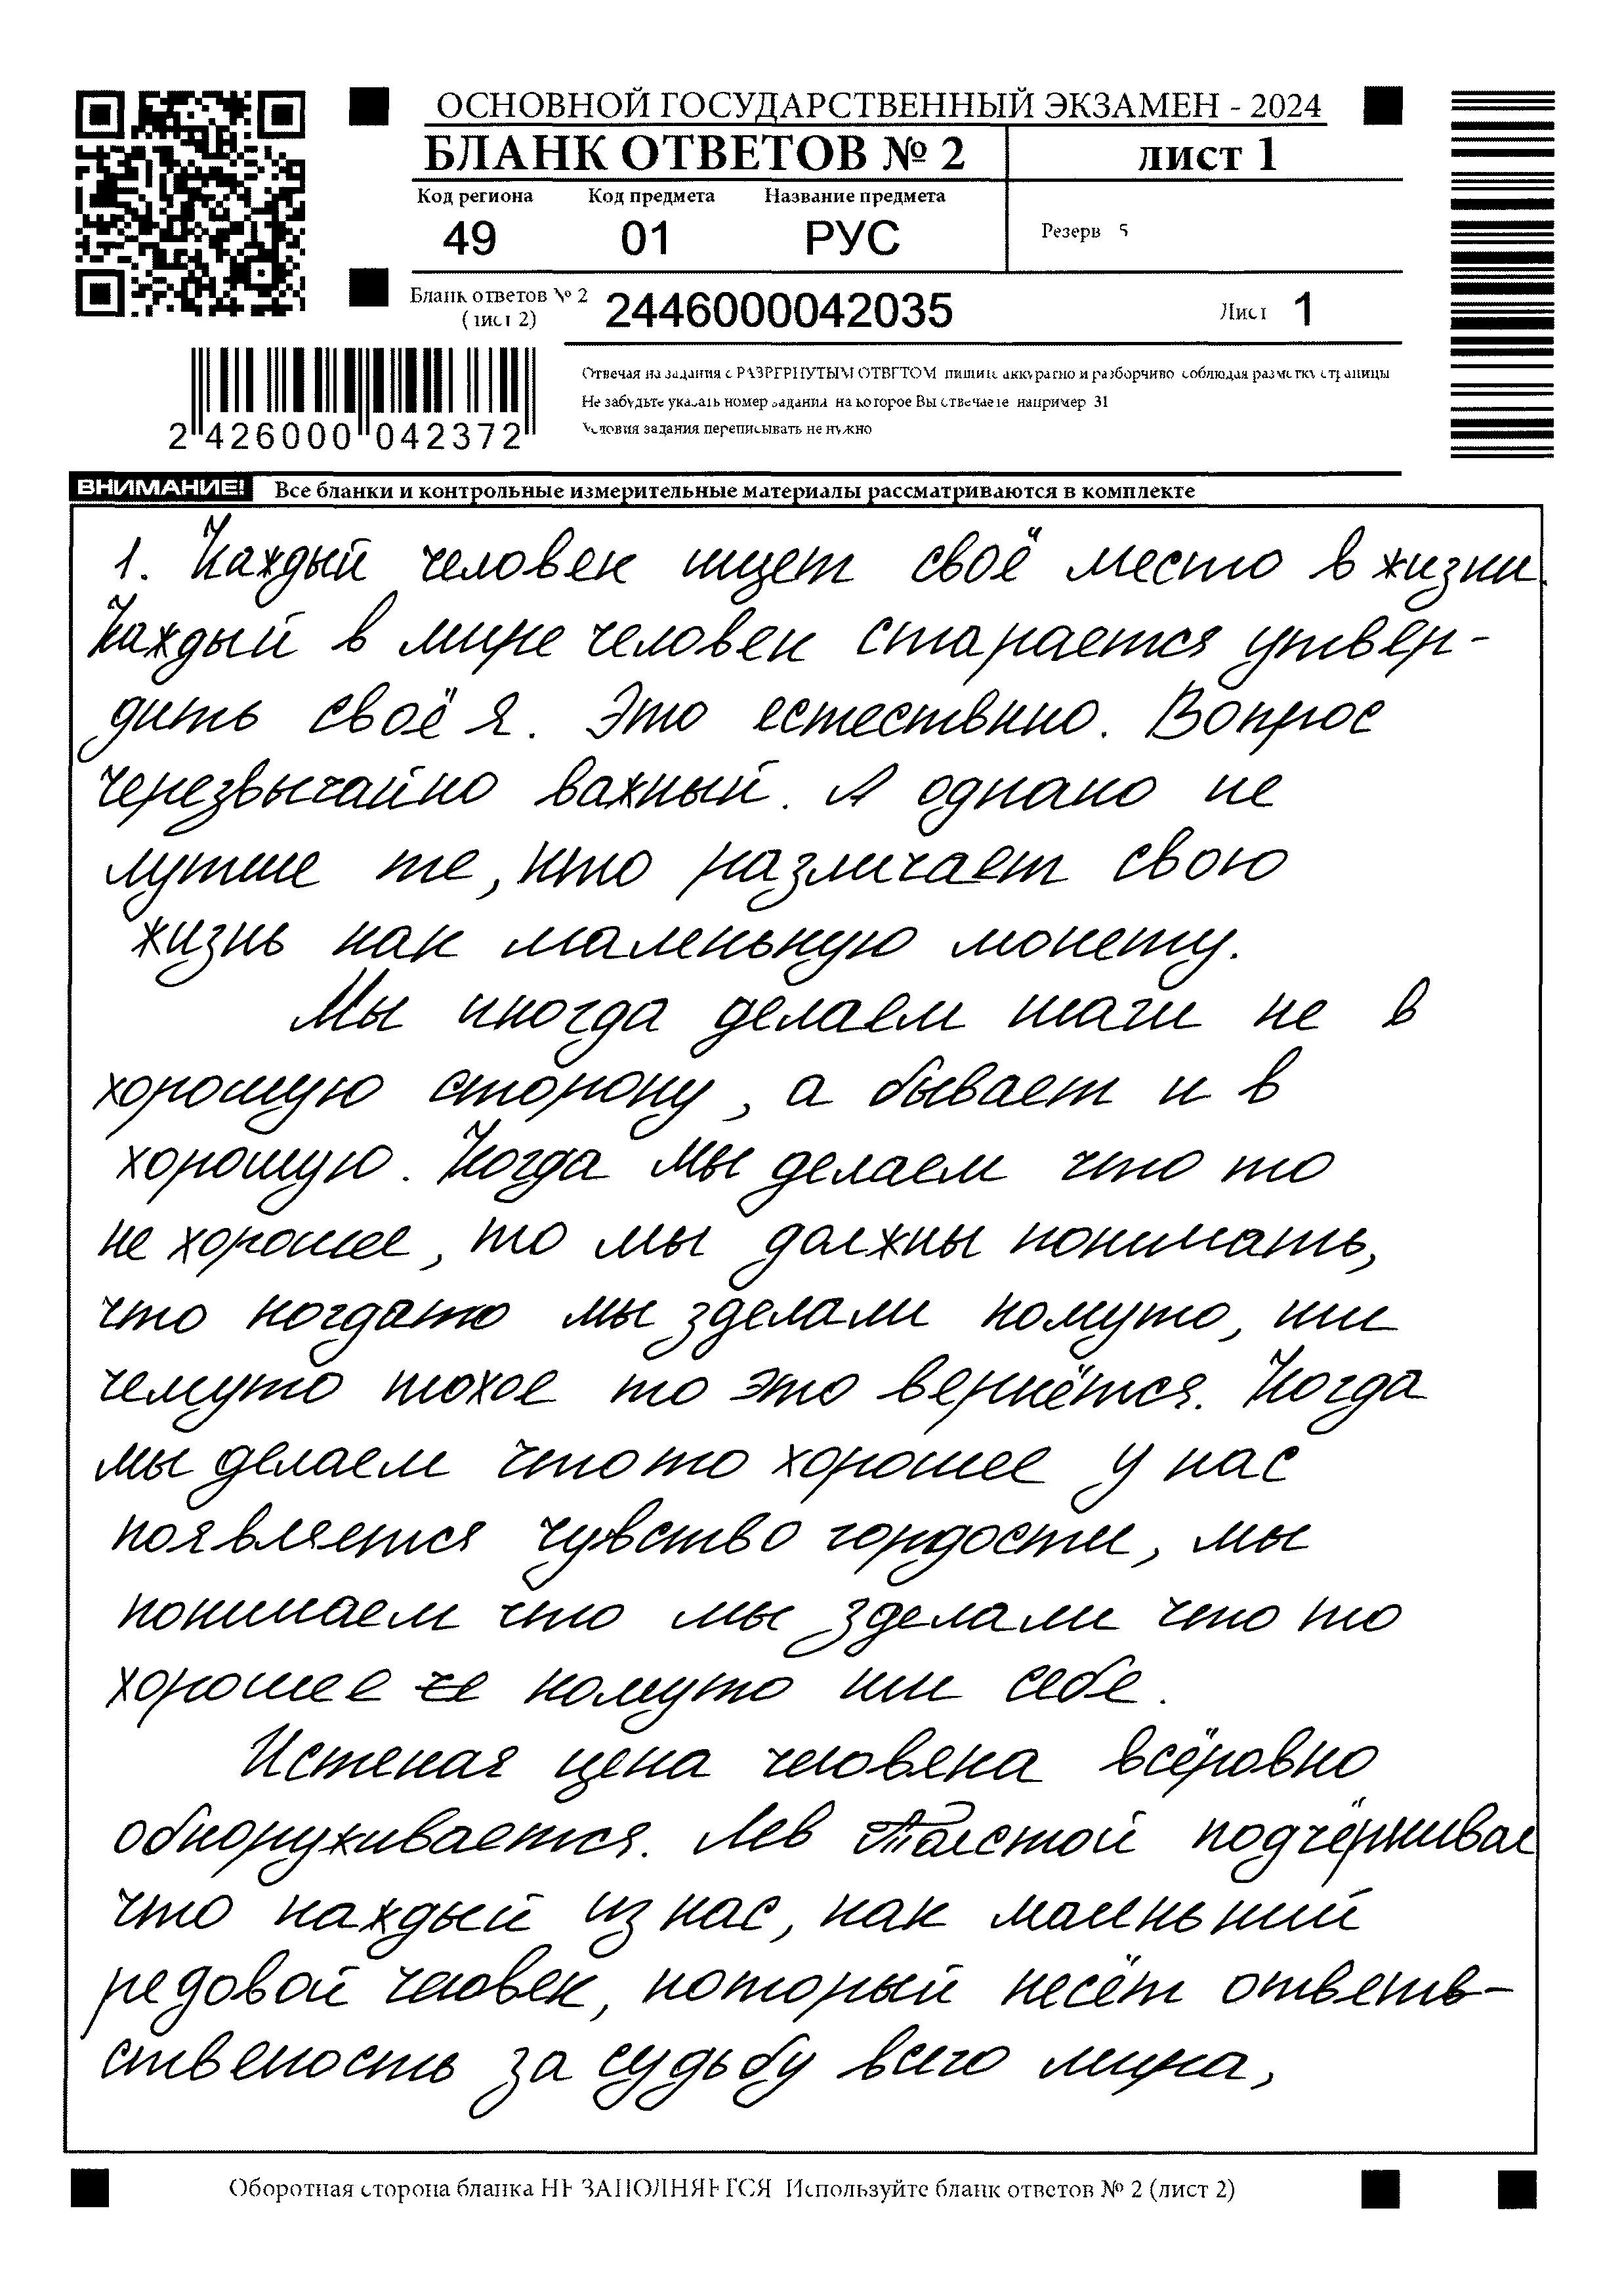 ОСНОВНОЙ ГОСУДАРСТВЕННЫЙ ЭКЗАМЕН - 2024
БЛАНК ОТВЕТОВ № 2
лист 1
Код региона Код предмета Название предмета
49 01 РУС
Резерв 5
Бланк ответов № 2
(лист 2)
2446000042035
Лист 1
2 426000 042372
Отвечая на задания с РАЗВЕРНУТЫМ ОТВЕТОМ пишите аккуратно и разборчиво соблюдая разметку страницы
Не забудьте указать номер задания на которое Вы отвечаете например 31
Условия задания переписывать не нужно
ВНИМАНИЕ! Все бланки и контрольные измерительные материалы рассматриваются в комплекте
1. Каждый человек ищет своё место в жизни.
Каждый в мире человек старается утвер-
дить своё я. Это естествнно. Вопрос
черезвычайно важный. А однако не
лутше те, кто различает свою
жизнь как маленькую монету.
Мы иногда делаем шаги не в
хорошую сторону, а бывает и в
хорошую. Когда мы делаем что то
не хорошее, то мы должны понимать,
что когдато мы зделали комуто, или
чемуто плохое то это вернётся. Когда
мы делаем чтото хорошее у нас
появляется чувство гордости, мы
понимаем что мы зделали что то
хорошее че комуто или себе.
Истеная цена человека всёровно
обноруживается. Лев Толстой подчёркивае
что каждый из нас, как маленький
редовой человек, который несёт ответв-
ственость за судьбу всего мира,
Оборотная сторона бланка НЕ ЗАПОЛНЯЕТСЯ Используйте бланк ответов № 2 (лист 2)